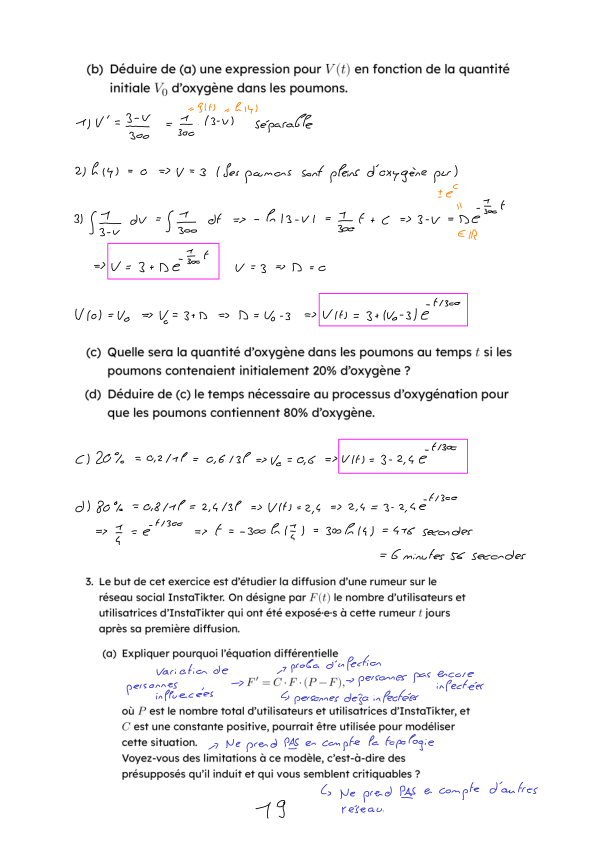 (b) Déduire de (a) une expression pour V(t) en fonction de la quantité
initiale V₀ d'oxygène dans les poumons.
= g(t) = h(y)
1) V' = (3-V)/300 = 1/300 (3-V) séparable
2) h(y) = 0 => V = 3 (les poumons sont pleins d'oxygène pur)
± e^c
3) ∫ 1/(3-V) dV = ∫ 1/300 dt => - ln|3-V| = 1/300 t + C => 3-V = D e^(-1/300 t)
∈ ℝ
=> V = 3 + D e^(-1/300 t) V = 3 => D = 0
V(0) = V₀ => V₀ = 3+D => D = V₀-3 => V(t) = 3+(V₀-3) e^(-t/300)
(c) Quelle sera la quantité d'oxygène dans les poumons au temps t si les
poumons contenaient initialement 20% d'oxygène ?
(d) Déduire de (c) le temps nécessaire au processus d'oxygénation pour
que les poumons contiennent 80% d'oxygène.
c) 20% = 0,2/1l = 0,6/3l => V₀ = 0,6 => V(t) = 3-2,4 e^(-t/300)
d) 80% = 0,8/1l = 2,4/3l => V(t) = 2,4 => 2,4 = 3-2,4e^(-t/300)
=> 1/4 = e^(-t/300) => t = -300 ln(1/4) = 300 ln(4) = 416 secondes
= 6 minutes 56 secondes
3. Le but de cet exercice est d'étudier la diffusion d'une rumeur sur le
réseau social InstaTikter. On désigne par F(t) le nombre d'utilisateurs et
utilisatrices d'InstaTikter qui ont été exposé·e·s à cette rumeur t jours
après sa première diffusion.
(a) Expliquer pourquoi l'équation différentielle
variation de personnes influencées
↗ proba d'infection
→ F' = C · F · (P − F), → personnes pas encore infectées
↳ personnes déjà infectées
où P est le nombre total d'utilisateurs et utilisatrices d'InstaTikter, et
C est une constante positive, pourrait être utilisée pour modéliser
cette situation. ↗ Ne prend PAS en compte la topologie
Voyez-vous des limitations à ce modèle, c'est-à-dire des
présupposés qu'il induit et qui vous semblent critiquables ?
↳ Ne prend PAS e compte d'autres
réseau.
19